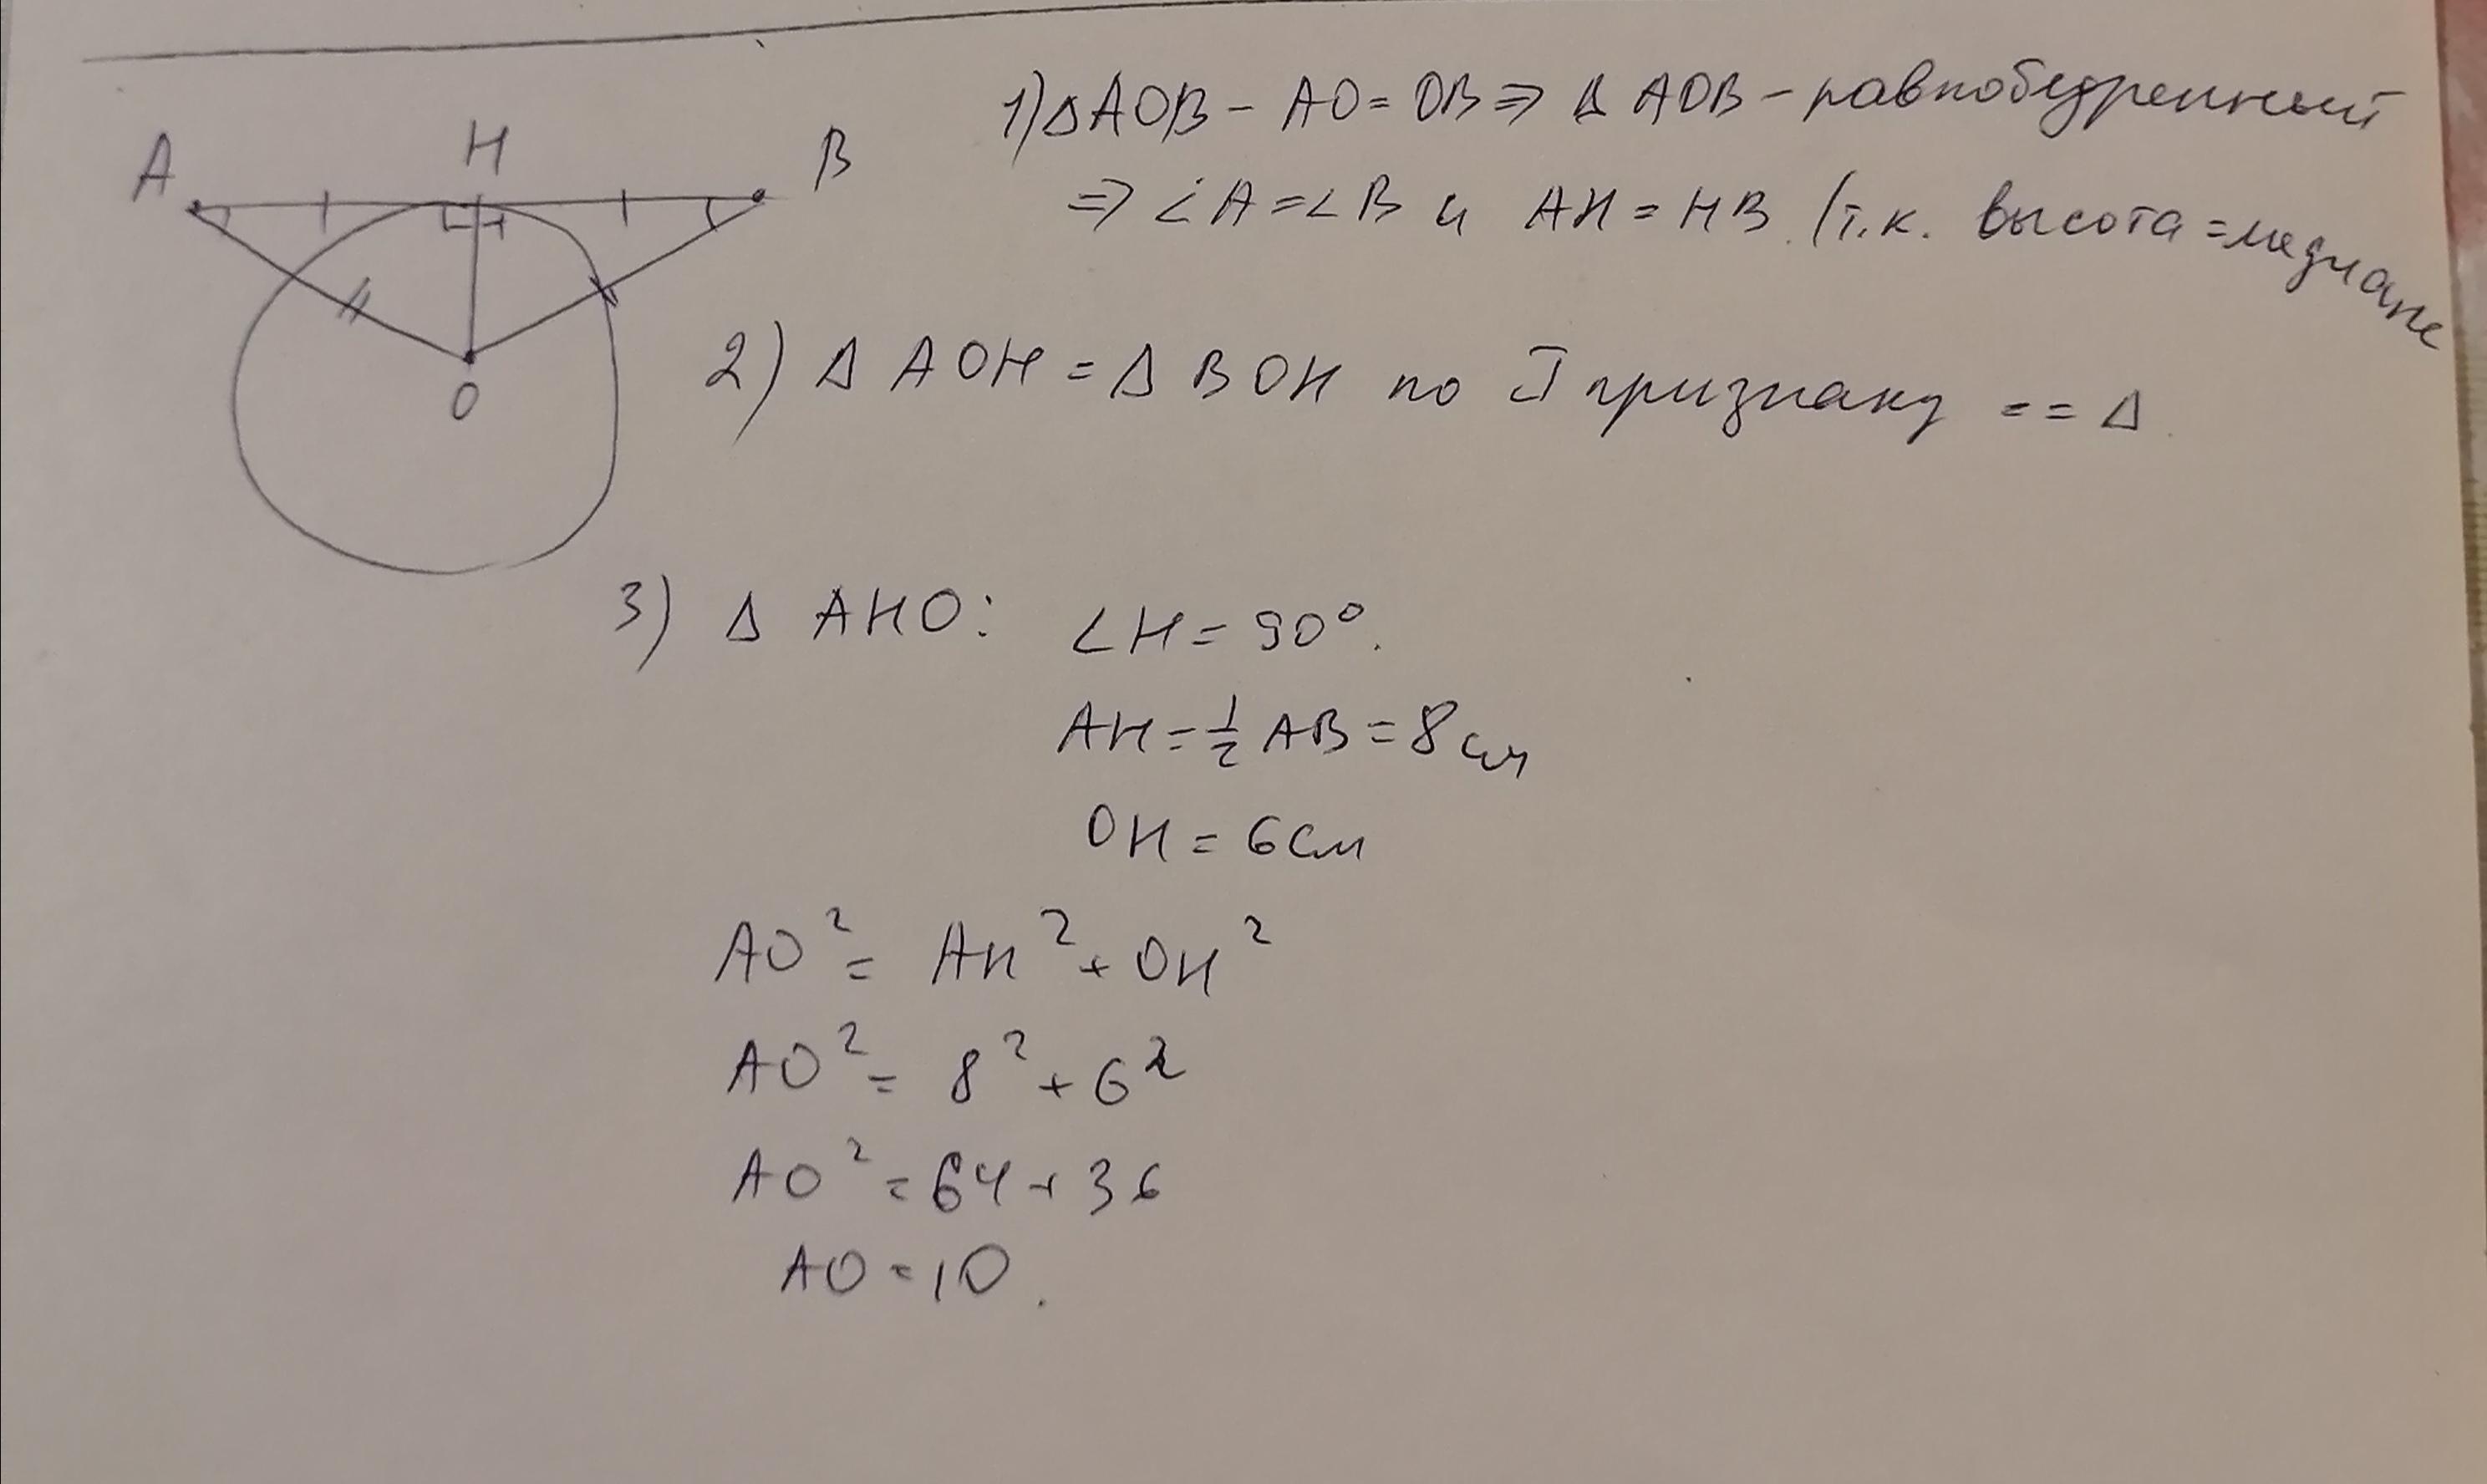 A
H
B
O
1) Δ AOB - AO = OB ⇒ Δ AOB - равнобедренный
⇒ ∠A = ∠B и AH = HB. (т.к. высота = медиане
2) Δ AOH = Δ BOH по I признаку == Δ
3) Δ AHO: ∠H = 90°.
AH = 1/2 AB = 8 см
OH = 6 см
AO² = AH² + OH²
AO² = 8² + 6²
AO² = 64 + 36
AO = 10.